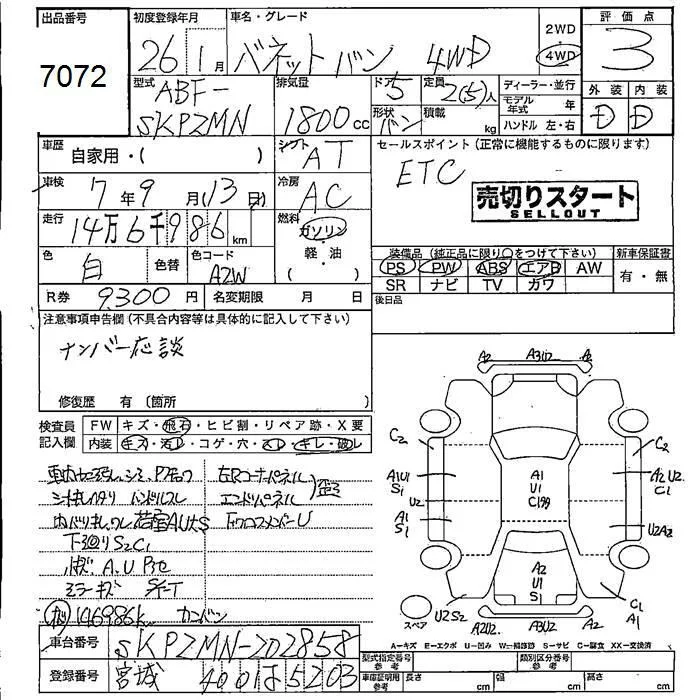 出品番号
7072
初度登録年月
26 1月
車名・グレード
バネット バン 4WD
2WD
4WD
評価点
3
型式
ABF-
SKP2MN
排気量
1800cc
ドア
5
定員
2(5)人
形状
バン
積載
kg
ディーラー・並行
モデル年式 年
ハンドル 左・右
外装 内装
D D
車歴
自家用・( )
シフト
AT
セールスポイント(正常に機能するものに限ります)
ETC
売切りスタート
SELLOUT
車検
7年9月(13日)
冷房
AC
走行
14万6千986km
燃料
ガソリン
・
軽・油
( )
色
白
色替
色コード
A2W
装備品(純正品に限り○をつけて下さい)
PS PW ABS エアB AW
SR ナビ TV カワ
新車保証書
有・無
R券 9300円
名変期限 月 日
後日品
注意事項申告欄(不具合内容等は具体的に記入して下さい)
ナンバー応談
修復歴 有 〔箇所
検査員記入欄
FW キズ・飛石・ヒビ割・リペア跡・X要
内装 キズ・汚レ・コゲ・穴・スレ・キレ・破レ
左Rコーナーパネル
エンドパネル
歪
シートキレ ハンドルスレ
荷室AUS
下廻りS2C1
ミラーキズ
146986k
A2 A3U2 A2
C2 C2
A1U1
S1
A1
U1
A2U2
C1
U2
A1
S1
U2A2
A2
U1
S1
C1
A1
スペア
U2S2
A2U2 A3U2 A2
A=キズ E=エクボ U=凹み W=補修跡 S=サビ C=腐食 XX=交換済
車台番号
SKP2MN-202858
登録番号
宮城 400 は 5203
型式指定番号
参考
類別区分番号
参考
車庫証明用
参考
長さ cm
幅 cm
高さ cm